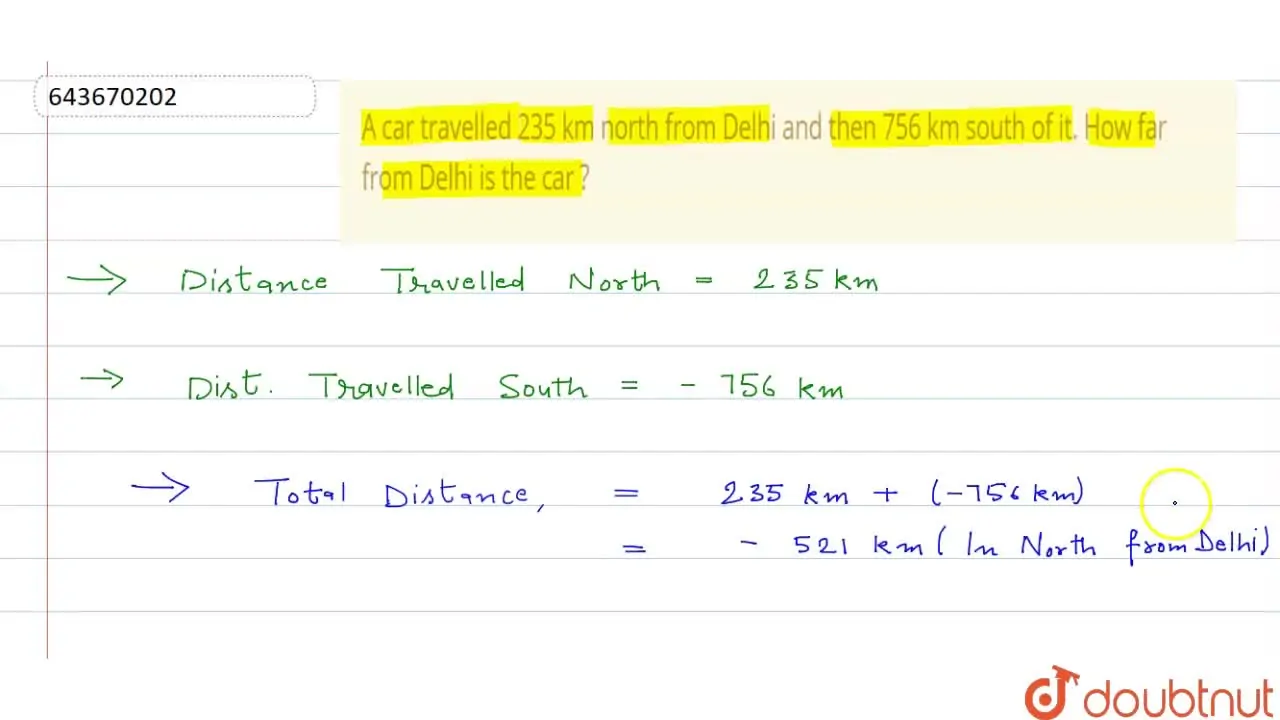 643670202
A car travelled 235 km north from Delhi and then 756 km south of it. How far
from Delhi is the car ?
→ Distance Travelled North = 235 km
→ Dist. Travelled South = - 756 km
→ Total Distance, = 235 km + (-756 km)
= - 521 km ( In North from Delhi)
doubtnut